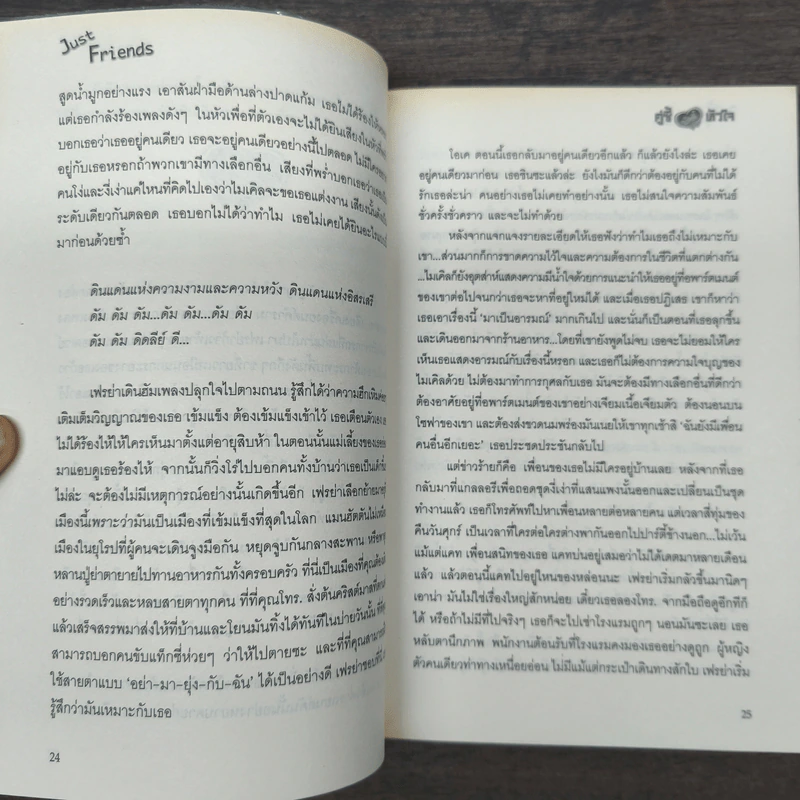 Just
Friends
สูดน้ำมูกอย่างแรง เอาสันฝ่ามือด้านล่างปาดแก้ม เธอไม่ได้ร้องไห้
แต่เธอกำลังร้องเพลงดังๆ ในหัวเพื่อที่ตัวเองจะไม่ได้ยินเสียงในหัวที่
บอกเธอว่าเธออยู่คนเดียว เธอจะอยู่คนเดียวอย่างนี้ไปตลอด ไม่มีใคร
อยู่กับเธอหรอกถ้าพวกเขามีทางเลือกอื่น เสียงที่พร่ำบอกเธอว่า
คนโง่และงี่เง่าแค่ไหนที่คิดไปเองว่าไมเคิลจะขอเธอแต่งงาน เสียงนั้น
ระดับเดียวกันตลอด เธอบอกไม่ได้ว่าทำไม เธอไม่เคยได้ยินอะไร
มาก่อนด้วยซ้ำ
ดินแดนแห่งความงามและความหวัง ดินแดนแห่งอิสรเสรี
ดัม ดัม ดัม...ดัม ดัม...ดัม ดัม
ดัม ดัม ดิดลีย์ ดี...
เฟรย่าเดินฮัมเพลงปลุกใจไปตามถนน รู้สึกได้ว่าความฮึกเหิม
เติมเต็มวิญญาณของเธอ เข้มแข็ง ต้องเข้มแข็งเข้าไว้ เธอเตือนตัวเอง
ไม่ได้ร้องไห้ให้ใครเห็นมาตั้งแต่อายุสิบห้า ในตอนนั้นแม่เลี้ยงของเธอ
มาแอบดูเธอร้องไห้ จากนั้นก็วิ่งโร่ไปบอกคนทั้งบ้านว่าเธอเป็นเด็ก
ไม่ล่ะ จะต้องไม่มีเหตุการณ์อย่างนั้นเกิดขึ้นอีก เฟรย่าเลือกย้ายมาอยู่
เมืองนี้เพราะว่ามันเป็นเมืองที่เข้มแข็งที่สุดในโลก แมนฮัตตันไม่
เมืองในยุโรปที่ผู้คนจะเดินจูงมือกัน หยุดจูบกันกลางสะพาน หรือ
หลานปู่ย่าตายายไปทานอาหารกันทั้งครอบครัว ที่นี่เป็นเมืองที่คุณต้อง
อย่างรวดเร็วและหลบสายตาทุกคน ที่ที่คุณโทร. สั่งต้นคริสต์มาส
แล้วเสร็จสรรพมาส่งให้ที่บ้านและโยนมันทิ้งได้ทันทีในบ่ายวันนั้น ที่ที่
สามารถบอกคนขับแท็กซี่ห่วยๆ ว่าให้ไปตายซะ และที่ที่คุณสามารถ
ใช้สายตาแบบ ‘อย่า-มา-ยุ่ง-กับ-ฉัน’ ได้เป็นอย่างดี เฟรย่าชอบที่นี่
รู้สึกว่ามันเหมาะกับเธอ
24
คู่ซี้ หัวใจ
โอเค ตอนนี้เธอกลับมาอยู่คนเดียวอีกแล้ว ก็แล้วยังไงล่ะ เธอเคย
อยู่คนเดียวมาก่อน เธอชินซะแล้วล่ะ ยังไงมันก็ดีกว่าต้องอยู่กับคนที่ไม่ได้
รักเธอล่ะน่า คนอย่างเธอไม่เคยทำอย่างนั้น เธอไม่สนใจความสัมพันธ์
ชั่วครั้งชั่วคราว และจะไม่ทำด้วย
หลังจากแจกแจงรายละเอียดให้เธอฟังว่าทำไมเธอถึงไม่เหมาะกับ
เขา...ส่วนมากก็การขาดความไว้ใจและความต้องการในชีวิตที่แตกต่างกัน
...ไมเคิลก็ยังอุตส่าห์แสดงความมีน้ำใจด้วยการแนะนำให้เธออยู่ที่อพาร์ตเมนต์
ของเขาต่อไปจนกว่าเธอจะหาที่อยู่ใหม่ได้ และเมื่อเธอปฏิเสธ เขาก็หาว่า
เธอเอาเรื่องนี้ ‘มาเป็นอารมณ์’ มากเกินไป และนั่นก็เป็นตอนที่เธอลุกขึ้น
และเดินออกมาจากร้านอาหาร...โดยที่เขายังพูดไม่จบ เธอจะไม่ยอมให้ใคร
เห็นเธอแสดงอารมณ์กับเรื่องนี้หรอก และเธอก็ไม่ต้องการความใจบุญของ
ไมเคิลด้วย ไม่ต้องมาทำการกุศลกับเธอ มันจะต้องมีทางเลือกอื่นที่ดีกว่า
ต้องอาศัยอยู่ที่อพาร์ตเมนต์ของเขาอย่างเจียมเนื้อเจียมตัว ต้องนอนบน
โซฟาของเขา และต้องส่งขวดนมพร่องมันเนยให้เขาทุกเช้าสิ ‘ฉันยังมีเพื่อน
คนอื่นอีกเยอะ’ เธอประชดประชันกลับไป
แต่ข่าวร้ายก็คือ เพื่อนของเธอไม่มีใครอยู่บ้านเลย หลังจากที่เธอ
กลับมาที่แกลลอรีเพื่อถอดชุดงี่เง่าที่แสนแพงนั้นออกและเปลี่ยนเป็นชุด
ทำงานแล้ว เธอก็โทรศัพท์ไปหาเพื่อนหลายต่อหลายคน แต่เวลาสี่ทุ่มของ
คืนวันศุกร์ เป็นเวลาที่ใครต่อใครต่างพากันออกไปปาร์ตี้ข้างนอก...ไม่เว้น
แม้แต่แคท เพื่อนสนิทของเธอ แคทบ่นอยู่เสมอว่าไม่ได้เดตมาหลายเดือน
แล้ว แล้วตอนนี้แคทไปอยู่ไหนของหล่อนนะ เฟรย่าเริ่มกลัวขึ้นมานิดๆ
เอาน่า มันไม่ใช่เรื่องใหญ่สักหน่อย เดี๋ยวเธอลองโทร. จากมือถือดูอีกทีก็
ได้ หรือถ้าไม่มีที่ไปจริงๆ เธอก็จะไปเช่าโรงแรมถูกๆ นอนมันซะเลย เธอ
หลับตานึกภาพ พนักงานต้อนรับที่โรงแรมคงมองเธออย่างดูถูก ผู้หญิง
ตัวคนเดียวท่าทางเหนื่อยอ่อน ไม่มีแม้แต่กระเป๋าเดินทางสักใบ เฟรย่าเริ่ม
25